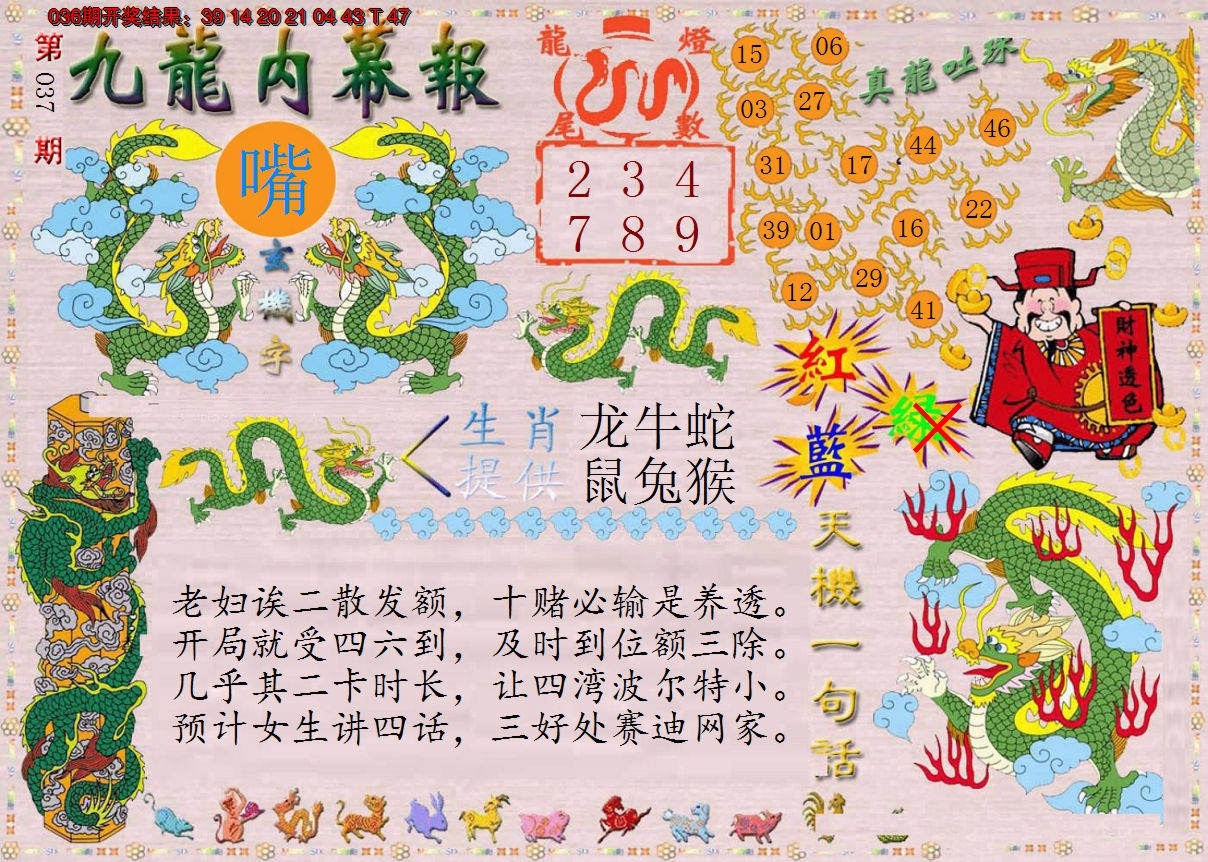 036期开奖结果：39 14 20 21 04 43 T 47
第037期
九龍内幕報
嘴
玄機字
龍燈尾數
2 3 4
7 8 9
真龍吐珠
15 06
03 27
44 46
31 17
39 01 16 22
12 29 41
紅
綠
藍
財神透色
生肖提供
龙牛蛇
鼠兔猴
天機一句话
老妇诶二散发额，十赌必输是养透。
开局就受四六到，及时到位额三除。
几乎其二卡时长，让四湾波尔特小。
预计女生讲四话，三好处赛迪网家。